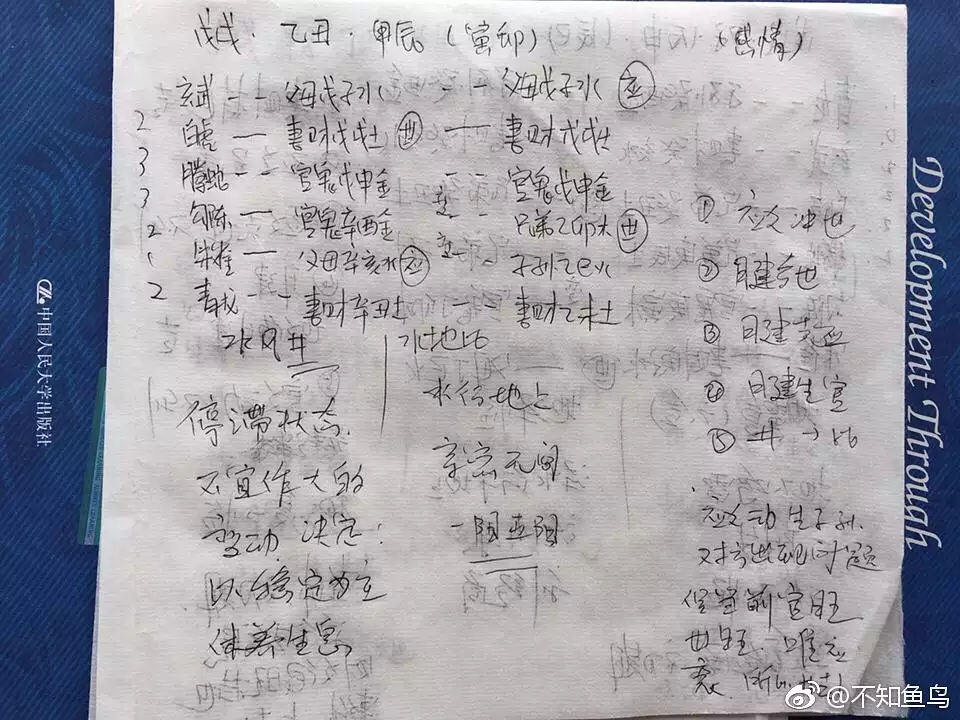 戊戌·乙丑·甲辰（寅卯）（感情）
玄武 -- 父母戊子水 -- 父母戊子水 应
2 白虎 — 妻财戊戌土 世 — 妻财戊戌土
3 腾蛇 -- 官鬼戊申金 -- 官鬼戊申金
3 勾陈 — 官鬼辛酉金 -- 兄弟乙卯木 世
2 朱雀 — 父母辛亥水 应 -- 子孙乙巳火
2 青龙 -- 妻财辛丑土 -- 妻财乙未土
水风井
水地比
停滞状态
不宜作大的
变动 决定：
以稳定为主
休养生息
水行地上
亲密无间
① 应爻冲世
② 日建合世
③ 日建克应
④ 日建生官
⑤ 井→比
应爻动生子孙
对方出现问题
但当前官旺
世旺 唯应
衰
中国人民大学出版社
Development Through
@不知鱼鸟